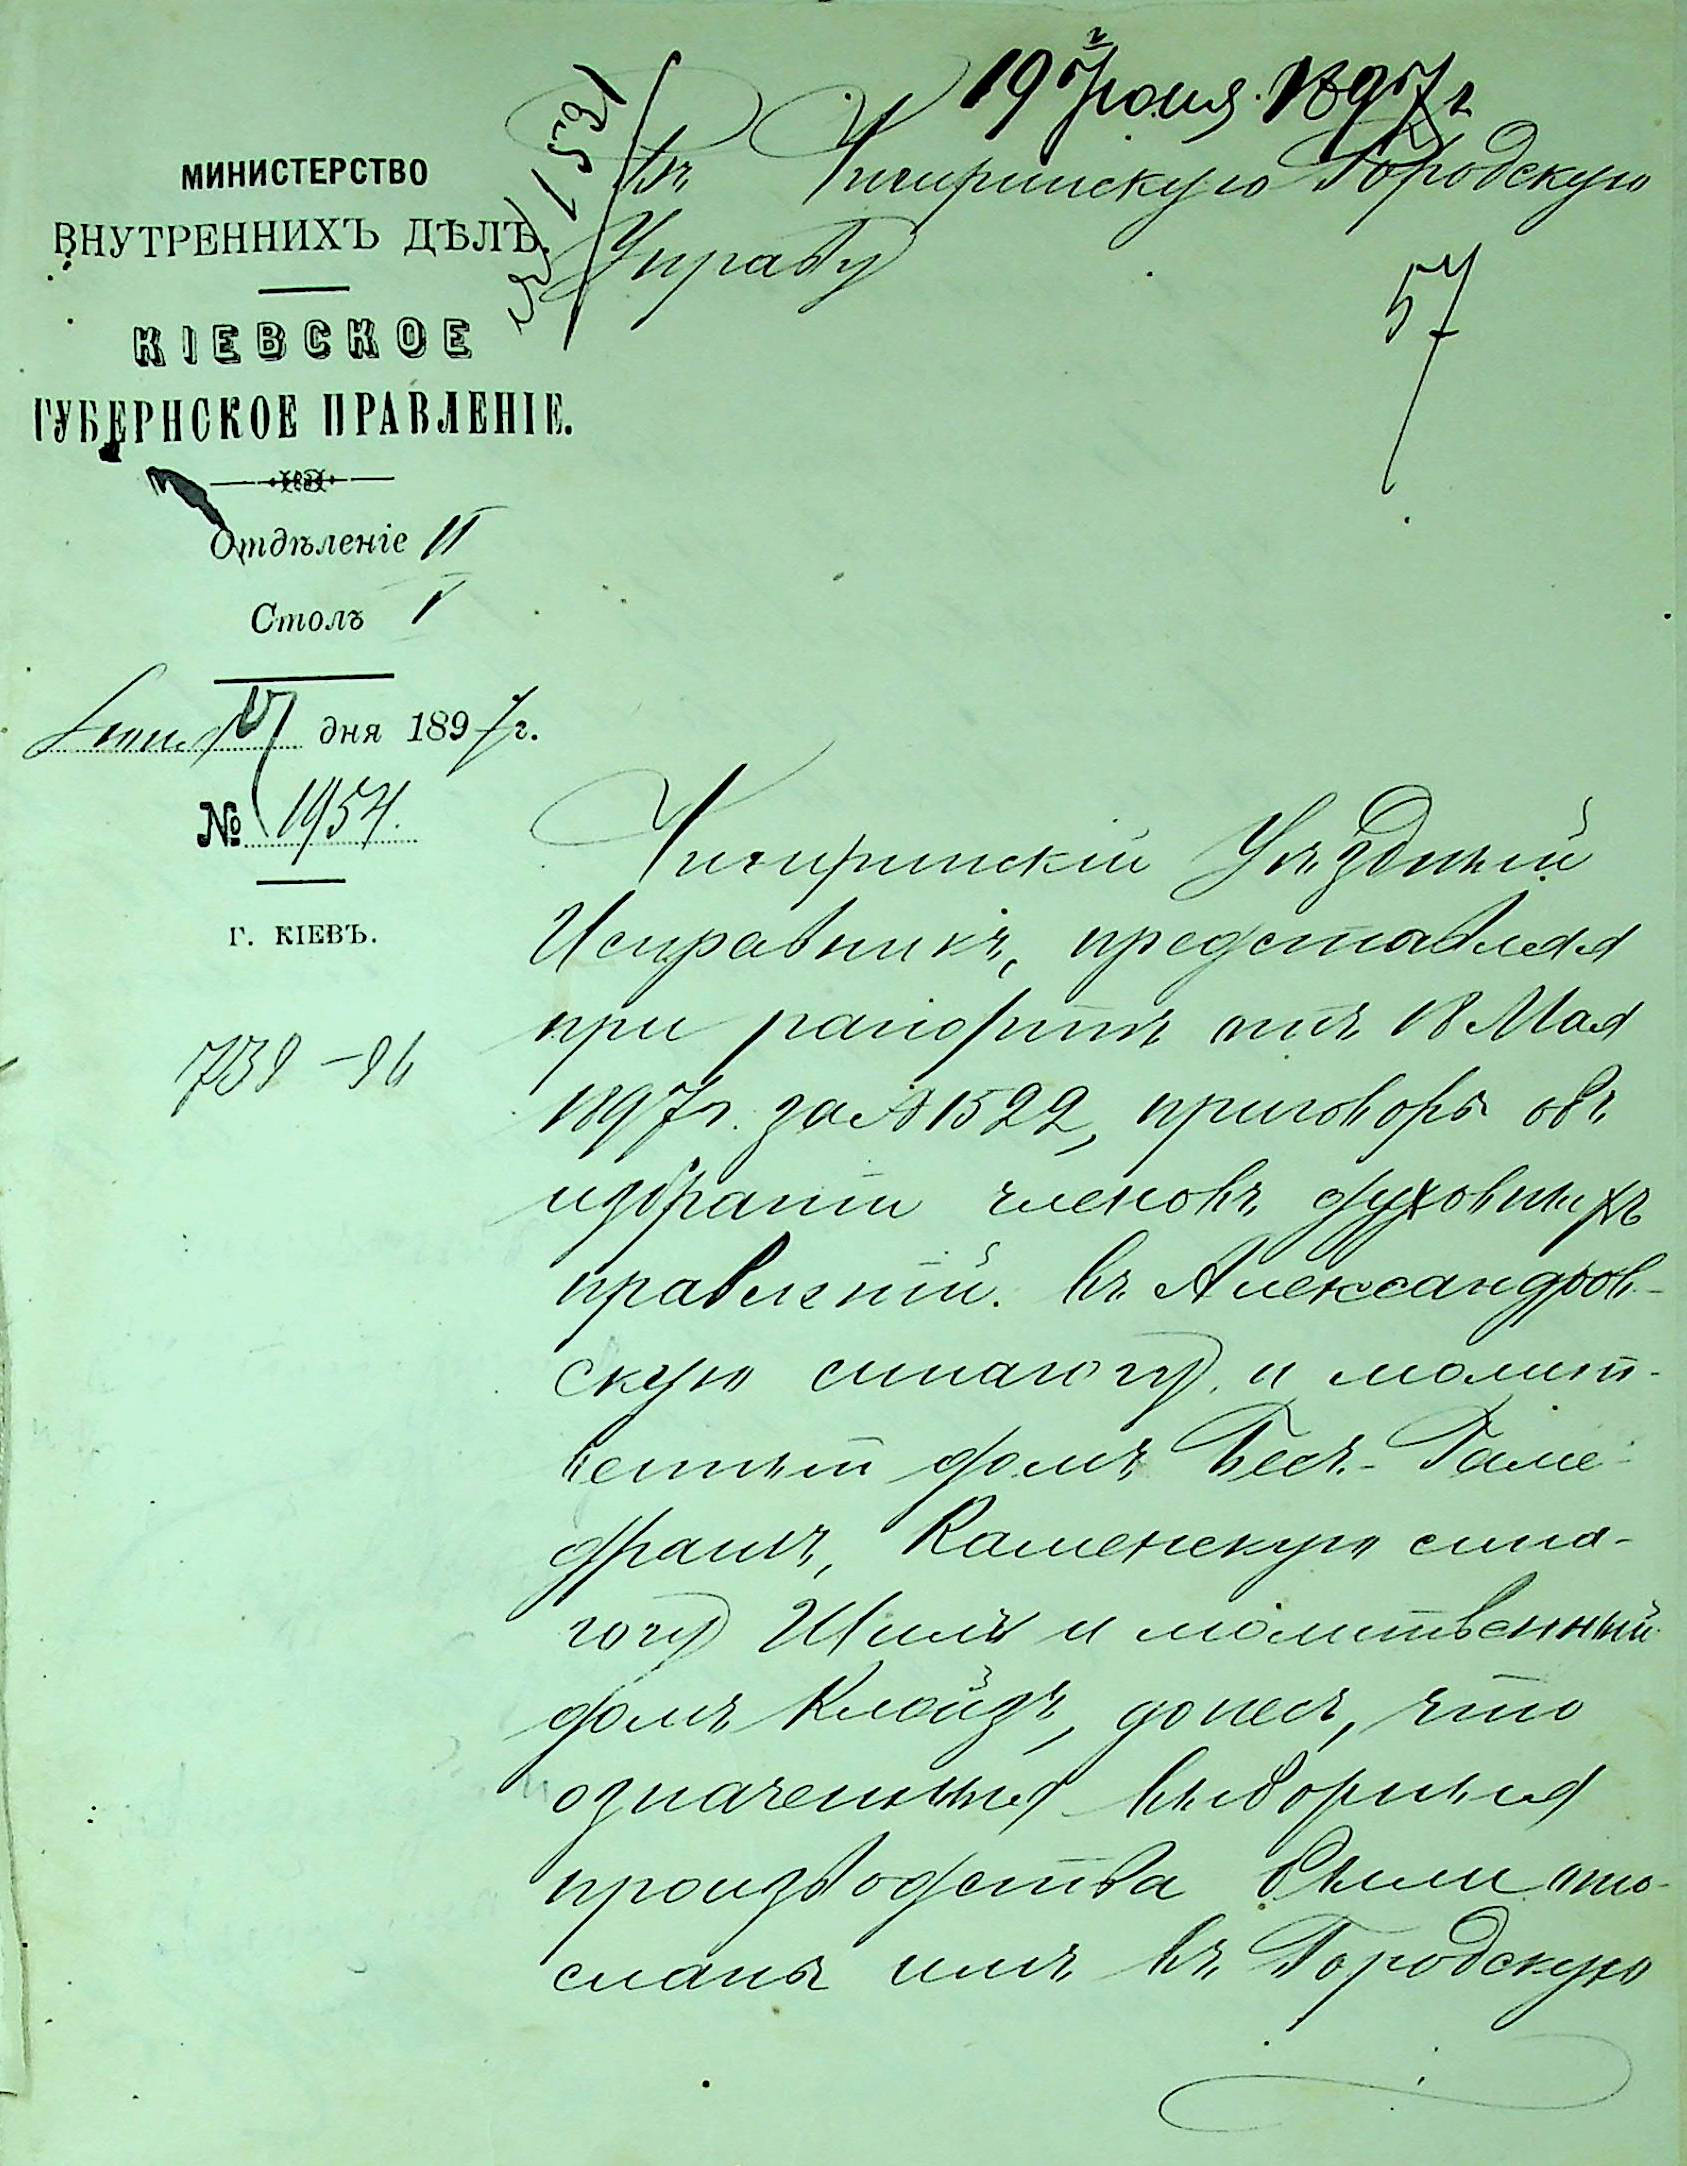 19 Іюня 1897 г
МИНИСТЕРСТВО
ВНУТРЕННИХЪ ДѢЛЪ.
КІЕВСКОЕ
ГУБЕРНСКОЕ ПРАВЛЕНІЕ.
Отдѣленіе II
Столъ I
Іюня 17 дня 1897 г.
№ 1954.
Г. КІЕВЪ.
739 – 96
Въ Чигиринскую Городскую
Управу
57
Чигиринскій Уѣздный
Исправникъ, представляя
при рапортѣ отъ 18 Мая
1897 г. за № 1522, приговоры объ
избраніи членовъ духовныхъ
правленій въ Александров-
скую синагогу и молит-
венный домъ Бесъ-Гаме-
драшъ, Каменскую сина-
гогу Шилъ и молитвенный
домъ Клойзъ, донесъ, что
означенныя выборныя
производства были ото-
сланы имъ въ Городскую